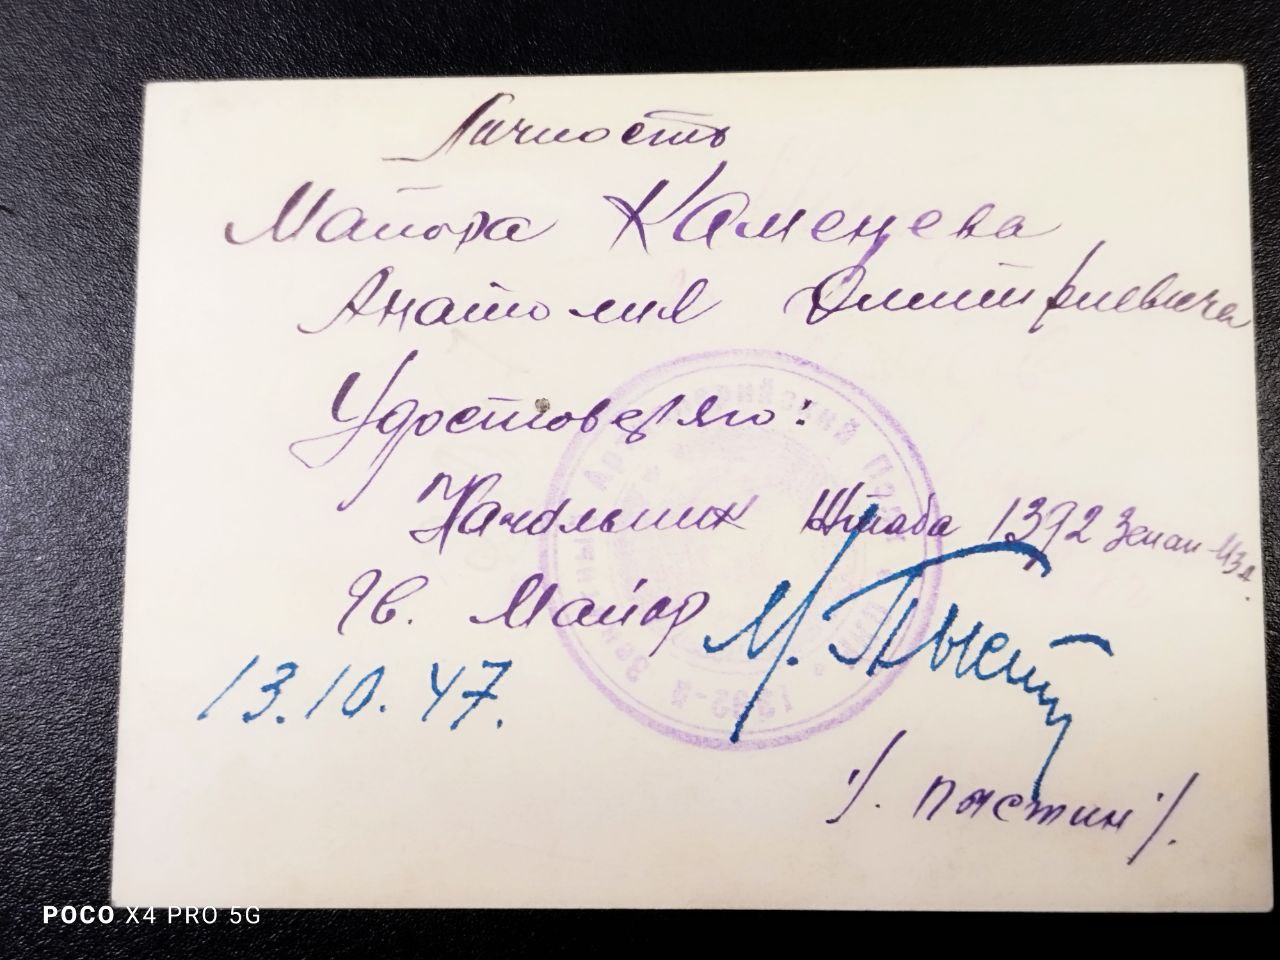 Личность
Майора Каменева
Анатолия Дмитриевича
Удостоверяю:
Начальник Штаба 1392 Зенап МЗА
Гв. Майор М. Пыстин
13.10.47.
/. Пыстин /.
1392-й Зен
POCO X4 PRO 5G